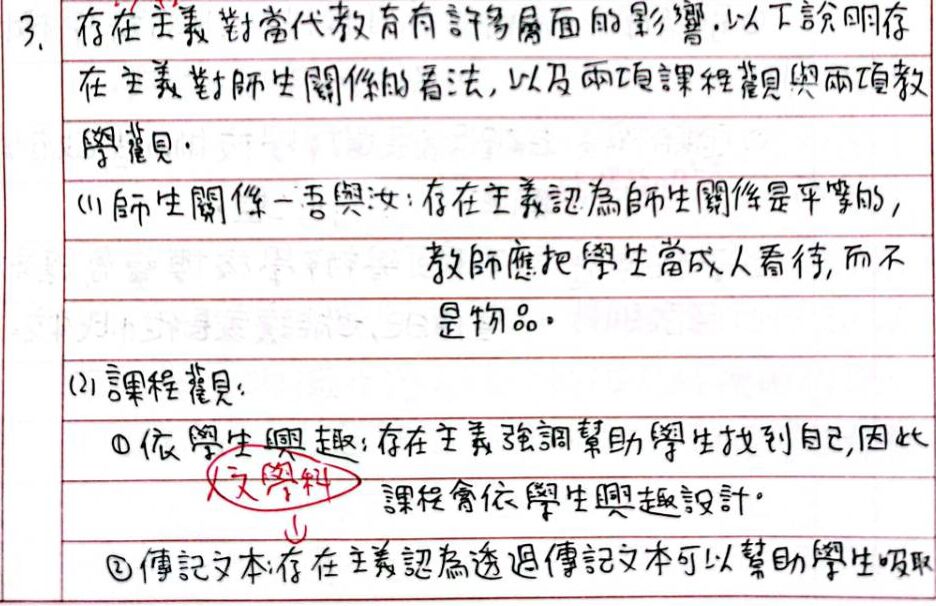 3. 存在主義對當代教育有許多層面的影響.以下說明存
在主義對師生關係的看法,以及兩項課程觀與兩項教
學觀。
(1)師生關係-吾與汝:存在主義認為師生關係是平等的,
教師應把學生當成人看待,而不
是物品。
(2)課程觀:
①依學生興趣:存在主義強調幫助學生找到自己,因此
人文學科
課程會依學生興趣設計。
↓
②傳記文本:存在主義認為透過傳記文本可以幫助學生吸取